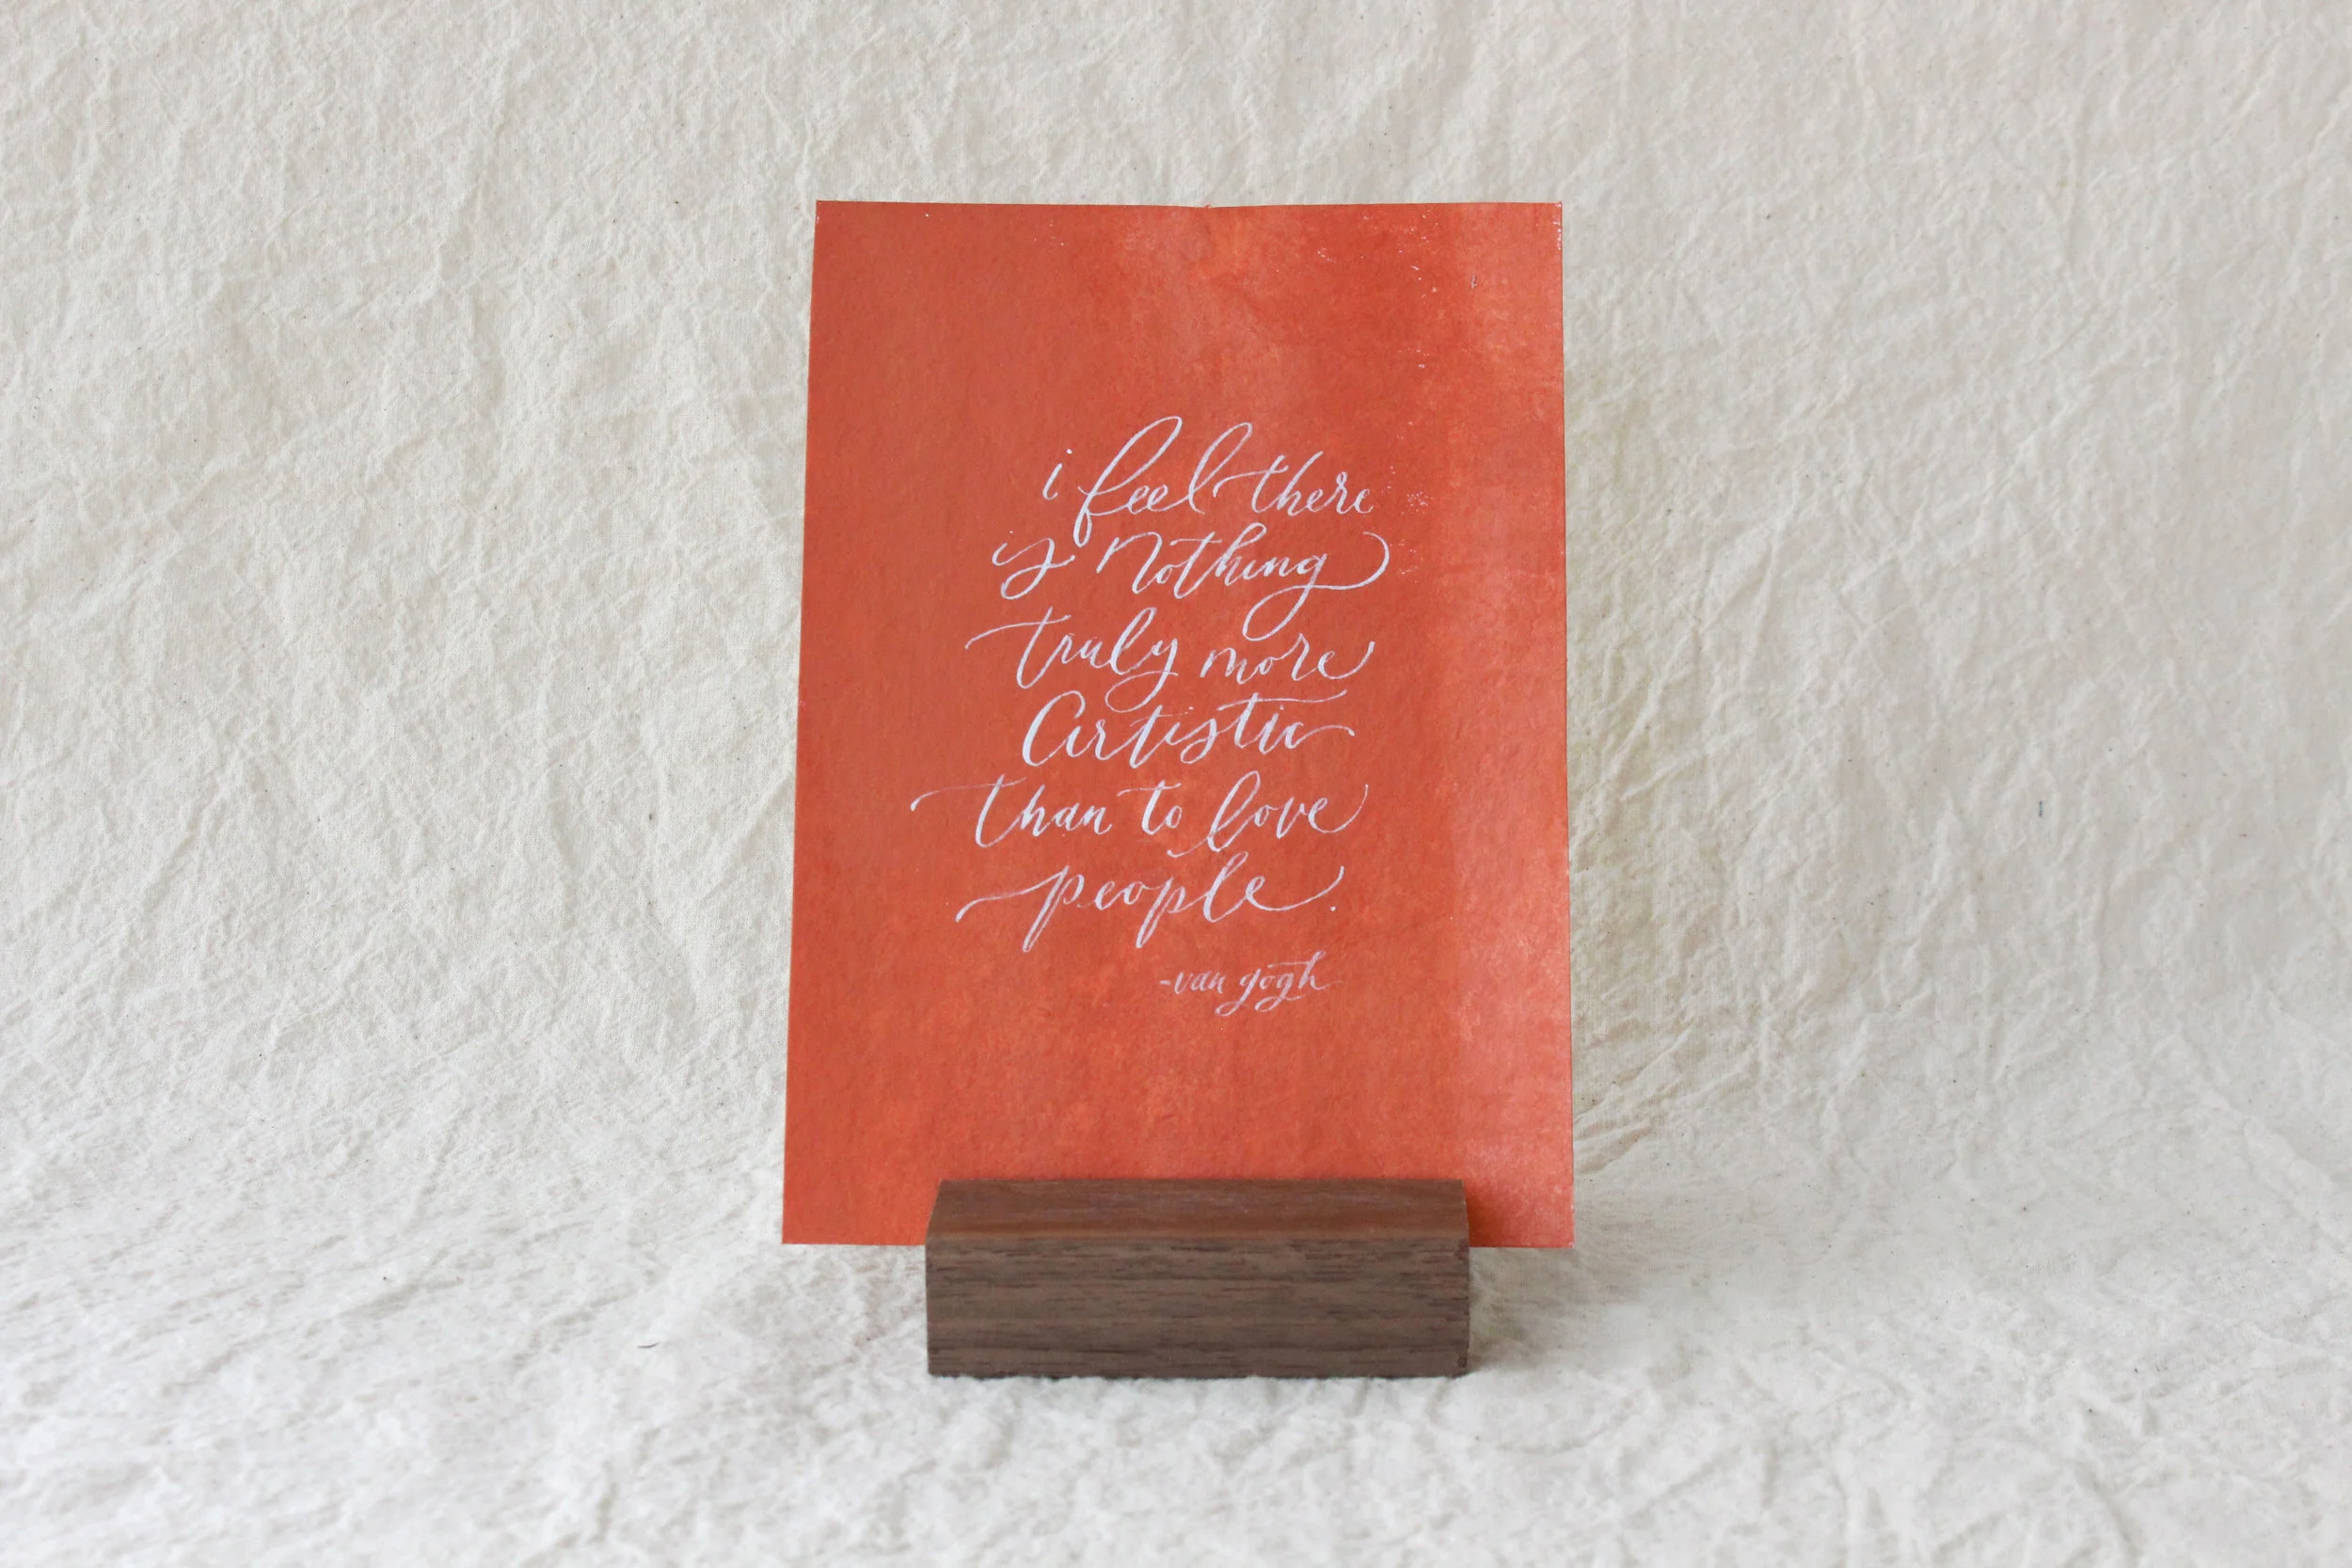 i feel there
is nothing
truly more
Artistic
than to love
people.
-van gogh